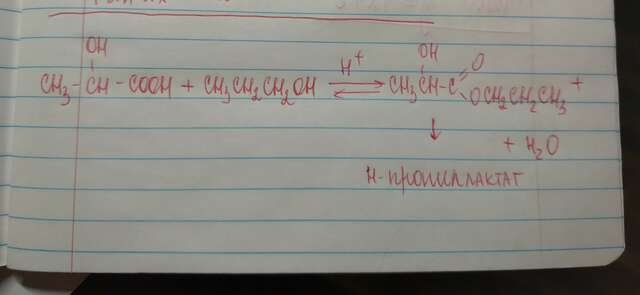 OH
CH3-CH-COOH + CH3CH2CH2OH ⇌ H+ CH3CH-C
OH
O
OCH2CH2CH3 +
+ H2O
н-пропиллактат